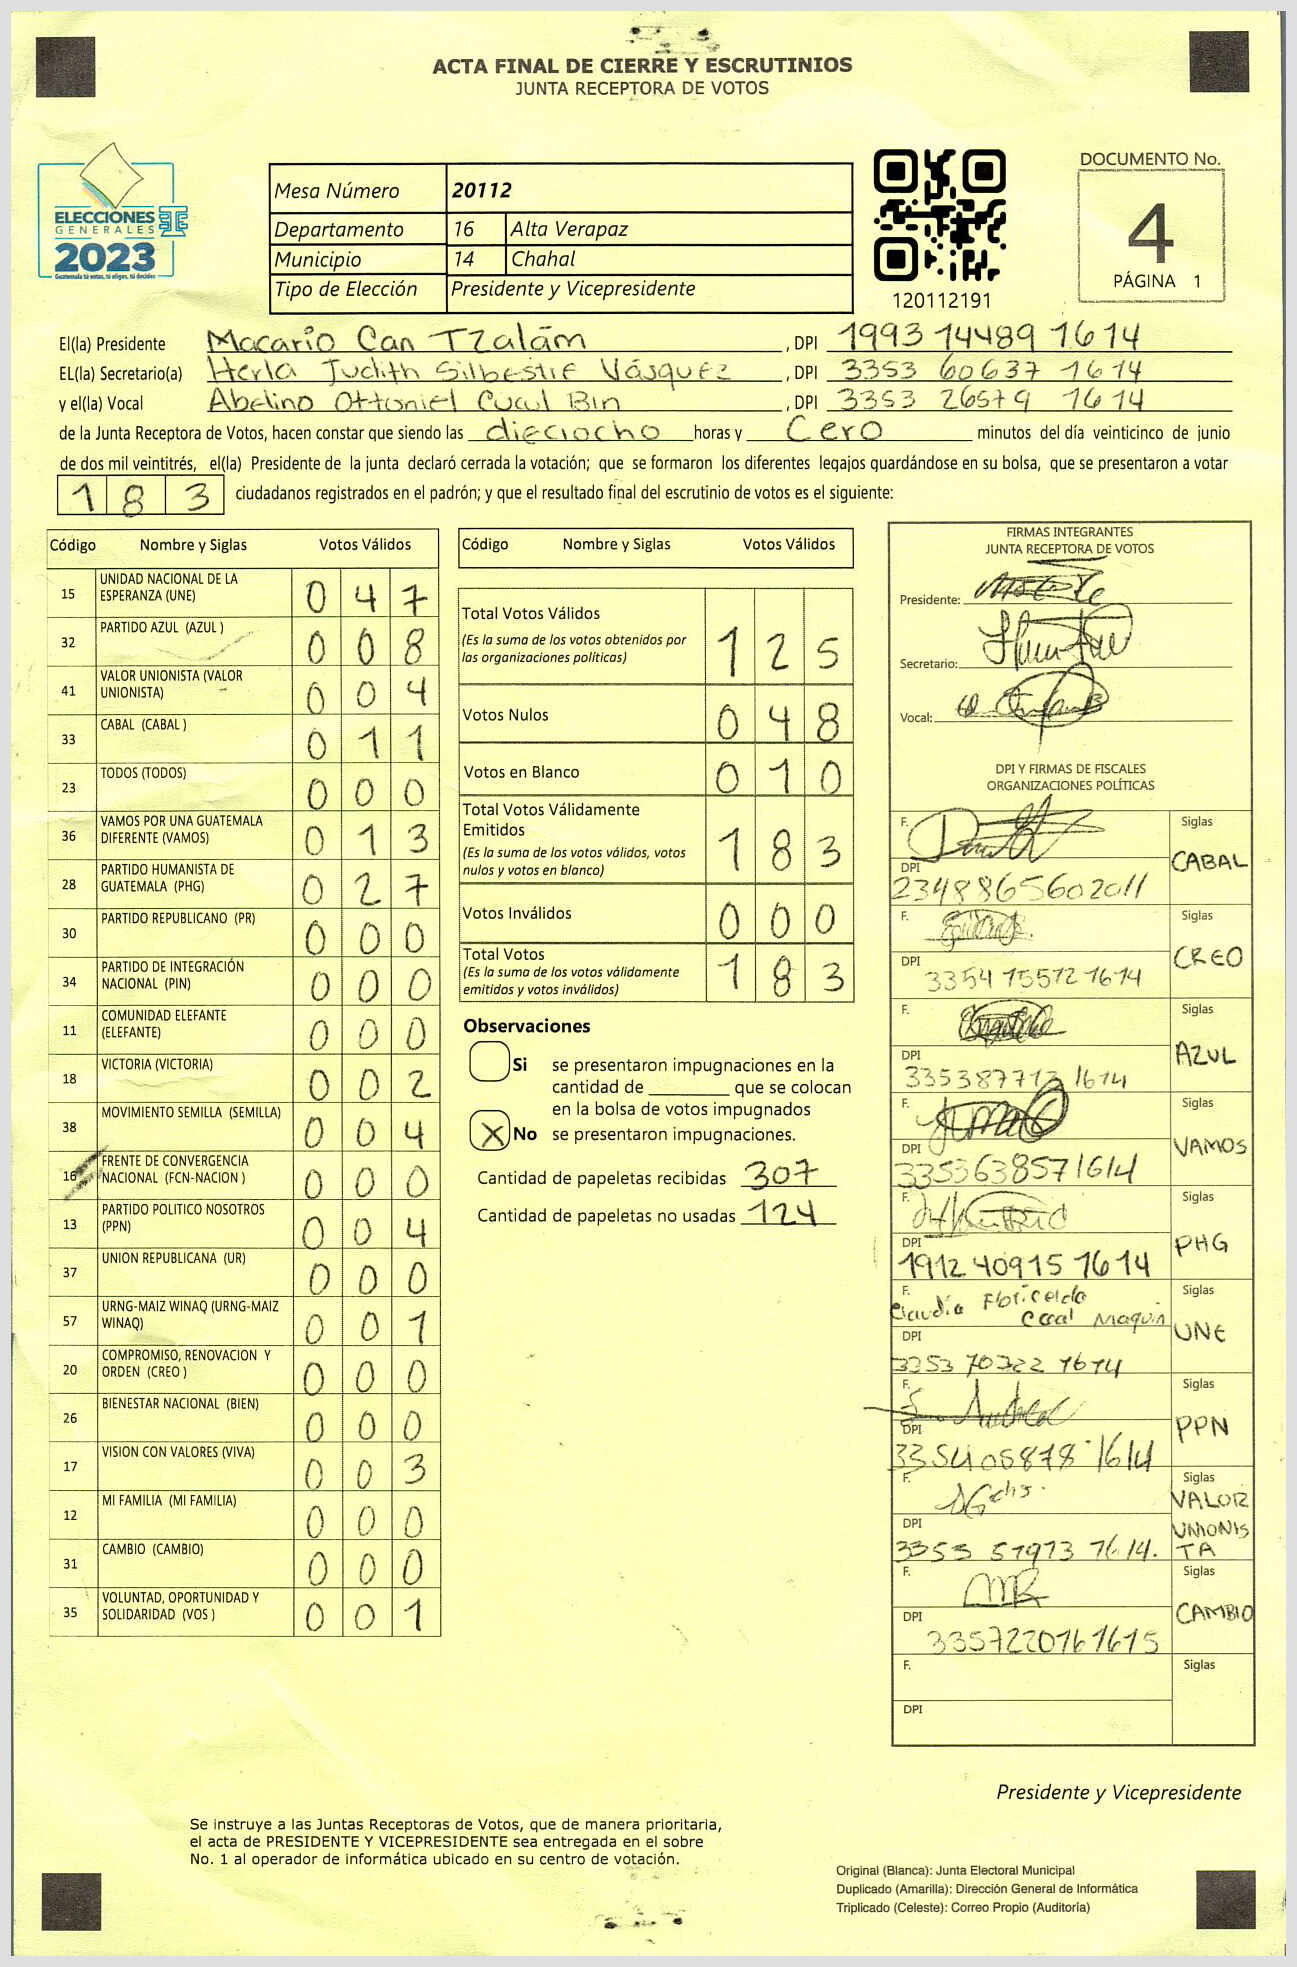 ACTA FINAL DE CIERRE Y ESCRUTINIOS
JUNTA RECEPTORA DE VOTOS
ELECCIONES
GENERALES
2023
Guatemala tú votas, tú eliges, tú decides
Mesa Número 20112
Departamento 16 Alta Verapaz
Municipio 14 Chahal
Tipo de Elección Presidente y Vicepresidente
120112191
DOCUMENTO No.
4
PÁGINA 1
El(la) Presidente Macario Can Tzalám, DPI 1993 14489 1614
EL(la) Secretario(a) Herla Judith Silbestie Vásquez, DPI 3353 60637 1614
y el(la) Vocal Abelino Ottoniel Cucul Bin, DPI 3353 26579 1614
de la Junta Receptora de Votos, hacen constar que siendo las dieciocho horas y Cero minutos del día veinticinco de junio
de dos mil veintitrés, el(la) Presidente de la junta declaró cerrada la votación; que se formaron los diferentes legajos guardándose en su bolsa, que se presentaron a votar
183 ciudadanos registrados en el padrón; y que el resultado final del escrutinio de votos es el siguiente:
Código Nombre y Siglas Votos Válidos
15 UNIDAD NACIONAL DE LA ESPERANZA (UNE) 047
32 PARTIDO AZUL (AZUL ) 008
41 VALOR UNIONISTA (VALOR UNIONISTA) 004
33 CABAL (CABAL ) 011
23 TODOS (TODOS) 000
36 VAMOS POR UNA GUATEMALA DIFERENTE (VAMOS) 013
28 PARTIDO HUMANISTA DE GUATEMALA (PHG) 027
30 PARTIDO REPUBLICANO (PR) 000
34 PARTIDO DE INTEGRACIÓN NACIONAL (PIN) 000
11 COMUNIDAD ELEFANTE (ELEFANTE) 000
18 VICTORIA (VICTORIA) 002
38 MOVIMIENTO SEMILLA (SEMILLA) 004
16 FRENTE DE CONVERGENCIA NACIONAL (FCN-NACION ) 000
13 PARTIDO POLITICO NOSOTROS (PPN) 004
37 UNION REPUBLICANA (UR) 000
57 URNG-MAIZ WINAQ (URNG-MAIZ WINAQ) 001
20 COMPROMISO, RENOVACION Y ORDEN (CREO ) 000
26 BIENESTAR NACIONAL (BIEN) 000
17 VISION CON VALORES (VIVA) 003
12 MI FAMILIA (MI FAMILIA) 000
31 CAMBIO (CAMBIO) 000
35 VOLUNTAD, OPORTUNIDAD Y SOLIDARIDAD (VOS ) 001
Código Nombre y Siglas Votos Válidos
Total Votos Válidos 125
(Es la suma de los votos obtenidos por
las organizaciones políticas)
Votos Nulos 048
Votos en Blanco 010
Total Votos Válidamente
Emitidos 183
(Es la suma de los votos válidos, votos
nulos y votos en blanco)
Votos Inválidos 000
Total Votos 183
(Es la suma de los votos válidamente
emitidos y votos inválidos)
Observaciones
Si se presentaron impugnaciones en la
cantidad de ________ que se colocan
en la bolsa de votos impugnados
X No se presentaron impugnaciones.
Cantidad de papeletas recibidas 307
Cantidad de papeletas no usadas 124
FIRMAS INTEGRANTES
JUNTA RECEPTORA DE VOTOS
Presidente:
Secretario:
Vocal:
DPI Y FIRMAS DE FISCALES
ORGANIZACIONES POLÍTICAS
F. Siglas
CABAL
DPI
2348865602011
F. Siglas
CREO
DPI
3354 15572 1614
F. Siglas
AZUL
DPI
335387713 1614
F. Siglas
VAMOS
DPI
3353638571614
F. Siglas
PHG
DPI
1912 40915 1614
F. Claudia Floricelda Siglas
Caal Maquin
UNE
DPI
3353 70322 1614
F. Siglas
PPN
DPI
3354 05878 1614
F. Siglas
VALOR
UNIONIS
TA
DPI
3353 51973 1614.
F. Siglas
CAMBIO
DPI
3357220161615
F. Siglas
DPI
Presidente y Vicepresidente
Se instruye a las Juntas Receptoras de Votos, que de manera prioritaria,
el acta de PRESIDENTE Y VICEPRESIDENTE sea entregada en el sobre
No. 1 al operador de informática ubicado en su centro de votación.
Original (Blanca): Junta Electoral Municipal
Duplicado (Amarilla): Dirección General de Informática
Triplicado (Celeste): Correo Propio (Auditoría)